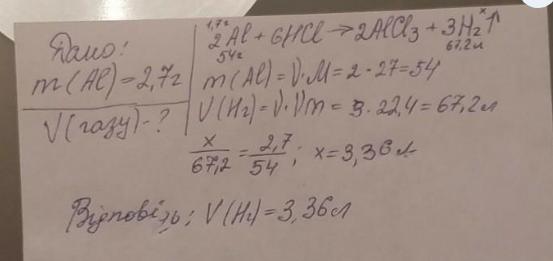 Дано:
m(Al)=2,7г
V(газу)-?
1,7г x
2Al + 6HCl → 2AlCl₃ + 3H₂↑
54г 67,2л
m(Al)=ν·M=2·27=54
V(H₂)=ν·Vm=3·22,4=67,2л
x/67,2 = 2,7/54; x=3,36л
Відповідь: V(H₂)=3,36л